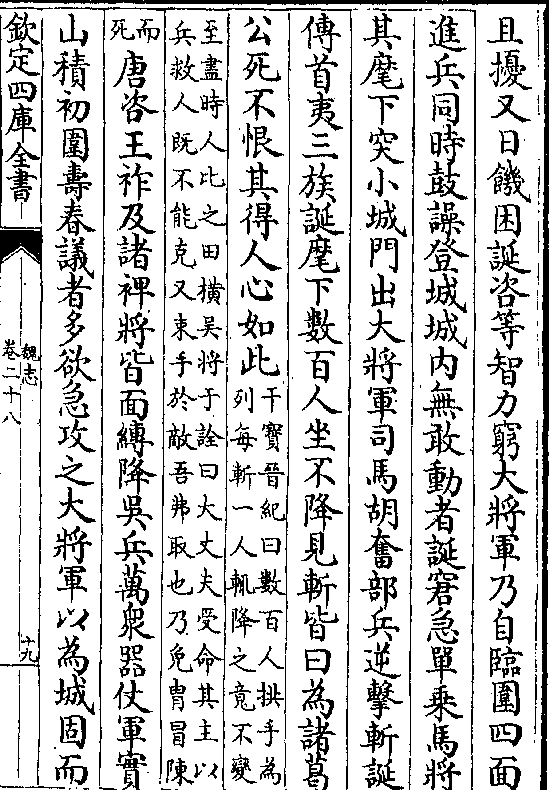 且擾又日饑困誕咨等智力窮大將軍乃自臨圍四面
進兵同時鼓譟登城城内無敢動者誕窘急單乗馬將
其麾下突小城門出大將軍司馬胡奮部兵逆擊斬誕
傳首夷三族誕麾下數百人坐不降見斬皆曰為諸葛
公死不恨其得人心如此
干寶晉紀曰數百人拱手為
列每斬一人輒降之竟不變
至盡時人比之田橫吴將于詮曰大丈夫受命其主以
兵救人既不能克又束手於敵吾弗取也乃免胄冒陳
而
死
唐咨王祚及諸裨將皆面縛降吳兵萬衆器仗軍實
山積初圍壽春議者多欲急攻之大將軍以為城固而
欽定四庫全書
魏志
卷二十八
十九